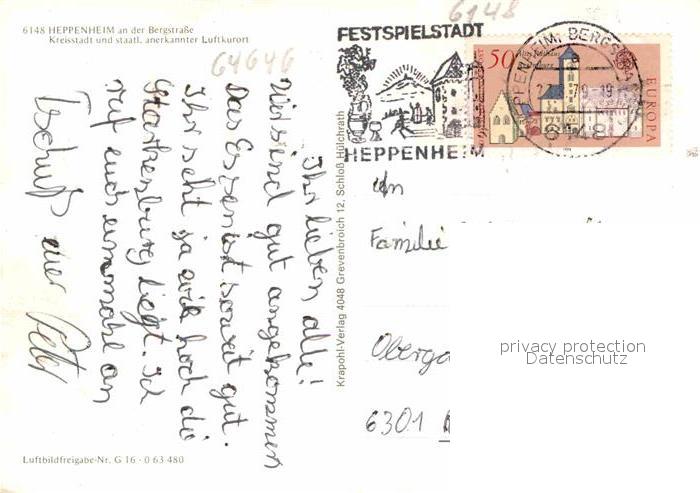 6148 HEPPENHEIM an der Bergstraße
Kreisstadt und staatl. anerkannter Luftkurort
6148
64646
FESTSPIELSTADT
HEPPENHEIM
50
Altes Rathaus
EUROPA
HEPPENHEIM, BERGSTR
6148
Ihr lieben alle!
Wir sind gut angekommen
Das Essen ist soweit gut.
Ihr seht ja wie hoch die
Starkenburg liegt. Ich
ruf euch einmahl an
Tschuß euer Peter
Krapohl-Verlag 4048 Grevenbroich 12, Schloß Hülchrath
An
Familie
Oberga
6301
privacy protection
Datenschutz
Luftbildfreigabe-Nr. G 16 - 0 63 480